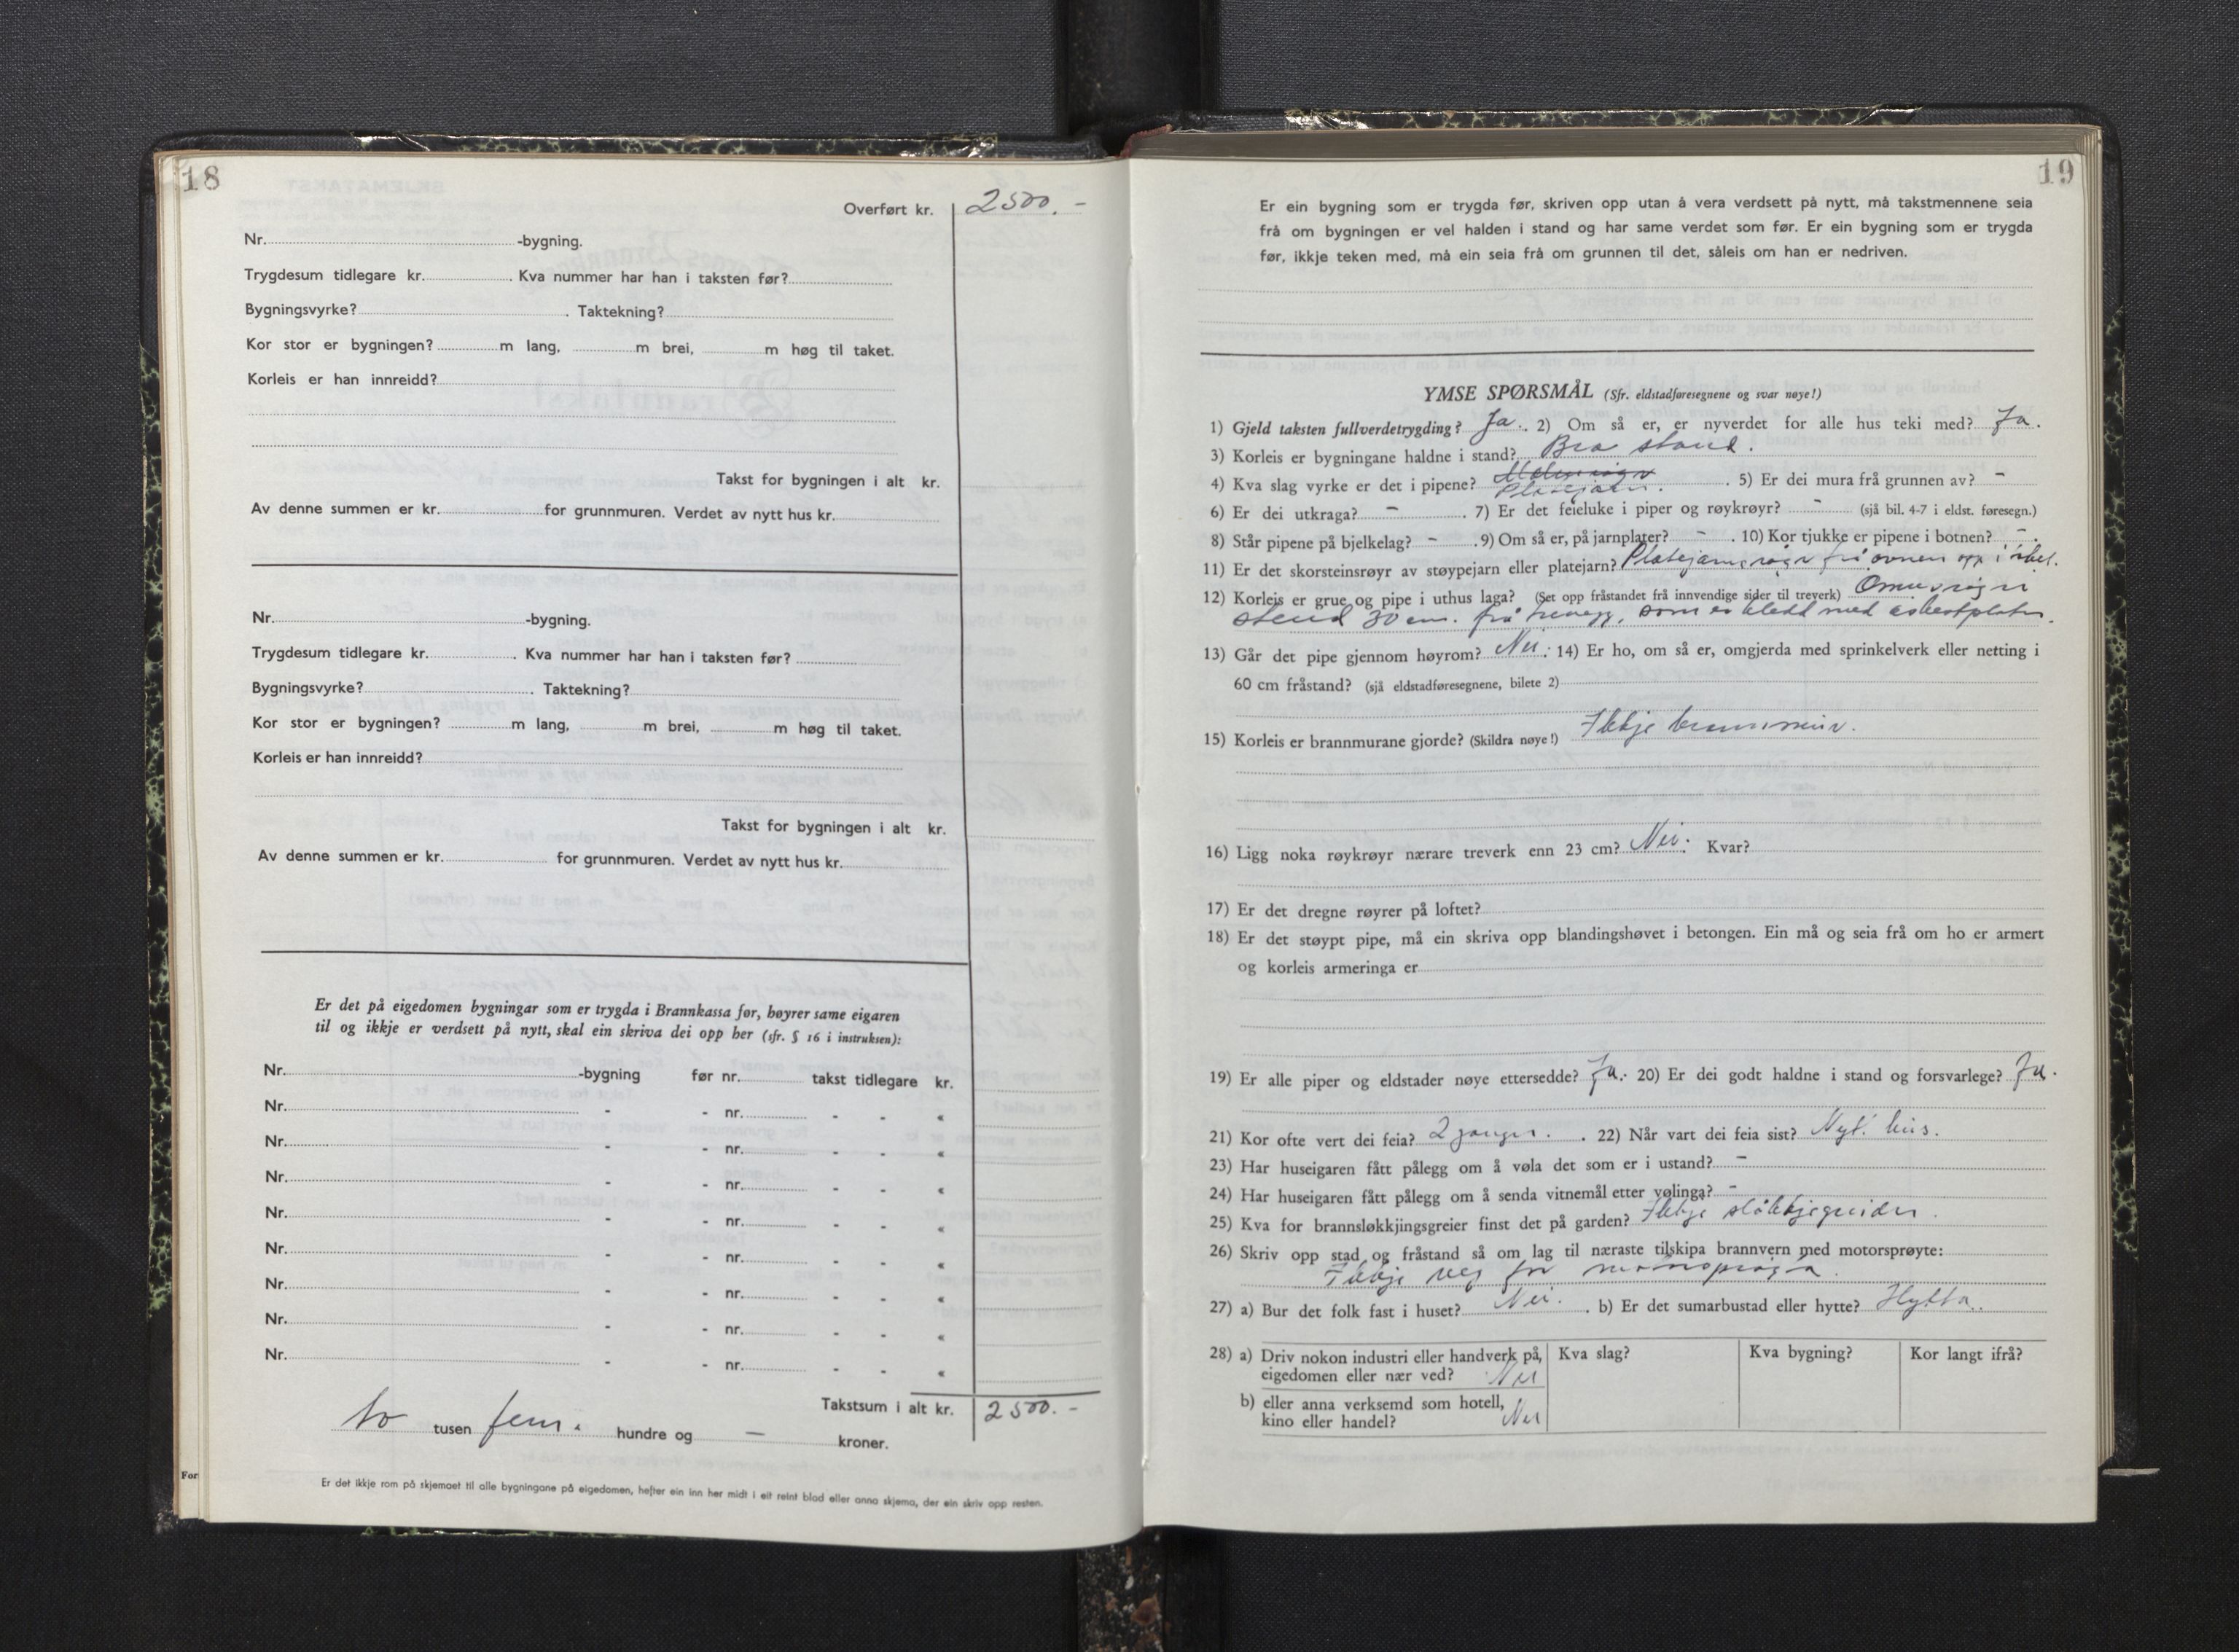 18
Overført kr. 2500.-
Nr. -bygning.
Trygdesum tidlegare kr. . Kva nummer har han i taksten før?
Bygningsvyrke? . Taktekning?
Kor stor er bygningen? m lang, m brei, m høg til taket.
Korleis er han innreidd?
Takst for bygningen i alt kr.
Av denne summen er kr. for grunnmuren. Verdet av nytt hus kr.
Nr. -bygning.
Trygdesum tidlegare kr. . Kva nummer har han i taksten før?
Bygningsvyrke? . Taktekning?
Kor stor er bygningen? m lang, m brei, m høg til taket.
Korleis er han innreidd?
Takst for bygningen i alt kr.
Av denne summen er kr. for grunnmuren. Verdet av nytt hus kr.
Er det på eigedomen bygningar som er trygda i Brannkassa før, høyrer same eigaren
til og ikkje er verdsett på nytt, skal ein skriva dei opp her (sfr. § 16 i instruksen):
Nr. -bygning før nr. takst tidlegare kr.
Nr. - - nr. - - «
Nr. - - nr. - - «
Nr. - - nr. - - «
Nr. - - nr. - - «
Nr. - - nr. - - «
Nr. - - nr. - - «
Nr. - - nr. - - «
Nr. - - nr. - - «
Takstsum i alt kr. 2500.-
to tusen fem. hundre og — kroner.
For
Er det ikkje rom på skjemaet til alle bygningane på eigedomen, hefter ein inn her midt i eit reint blad eller anna skjema, der ein skriv opp resten.
19
Er ein bygning som er trygda før, skriven opp utan å vera verdsett på nytt, må takstmennene seia
frå om bygningen er vel halden i stand og har same verdet som før. Er ein bygning som er trygda
før, ikkje teken med, må ein seia frå om grunnen til det, såleis om han er nedriven.
YMSE SPØRSMÅL (Sfr. eldstadføresegnene og svar nøye!)
1) Gjeld taksten fullverdetrygding? Ja. . 2) Om så er, er nyverdet for alle hus teki med? Ja.
3) Korleis er bygningane haldne i stand? Bra stand.
4) Kva slag vyrke er det i pipene? Platejarn. . 5) Er dei mura frå grunnen av? -
6) Er dei utkraga? - . 7) Er det feieluke i piper og røykrøyr? - (sjå bil. 4-7 i eldst. føresegn.)
8) Står pipene på bjelkelag? - . 9) Om så er, på jarnplater? - . 10) Kor tjukke er pipene i botnen? - .
11) Er det skorsteinsrøyr av støypejarn eller platejarn? Platejarnsrøyr frå ovnen opp i
12) Korleis er grue og pipe i uthus laga? (Set opp fråstandet frå innvendige sider til treverk) Omnsrøyri
stend 30 cm. frå trevegg, som er kledd med asbestplater.
13) Går det pipe gjennom høyrom? Nei. 14) Er ho, om så er, omgjerda med sprinkelverk eller netting i
60 cm fråstand? (sjå eldstadføresegnene, bilete 2)
15) Korleis er brannmurane gjorde? (Skildra nøye!) Ikkje brannmur.
16) Ligg noka røykrøyr nærare treverk enn 23 cm? Nei. Kvar?
17) Er det dregne røyrer på loftet?
18) Er det støypt pipe, må ein skriva opp blandingshøvet i betongen. Ein må og seia frå om ho er armert
og korleis armeringa er
19) Er alle piper og eldstader nøye ettersedde? Ja. 20) Er dei godt haldne i stand og forsvarlege? Ja.
21) Kor ofte vert dei feia? 2 ganger. . 22) Når vart dei feia sist? Nytt hus.
23) Har huseigaren fått pålegg om å vøla det som er i ustand? -
24) Har huseigaren fått pålegg om å senda vitnemål etter vølinga? -
25) Kva for brannsløkkjingsgreier finst det på garden? Ikkje sløkkjegreider.
26) Skriv opp stad og fråstand så om lag til næraste tilskipa brannvern med motorsprøyte:
Ikkje veg for
27) a) Bur det folk fast i huset? Nei. . b) Er det sumarbustad eller hytte? Hytta.
28) a) Driv nokon industri eller handverk på, Kva slag? Kva bygning? Kor langt ifrå?
eigedomen eller nær ved? Nei
b) eller anna verksemd som hotell,
kino eller handel? Nei